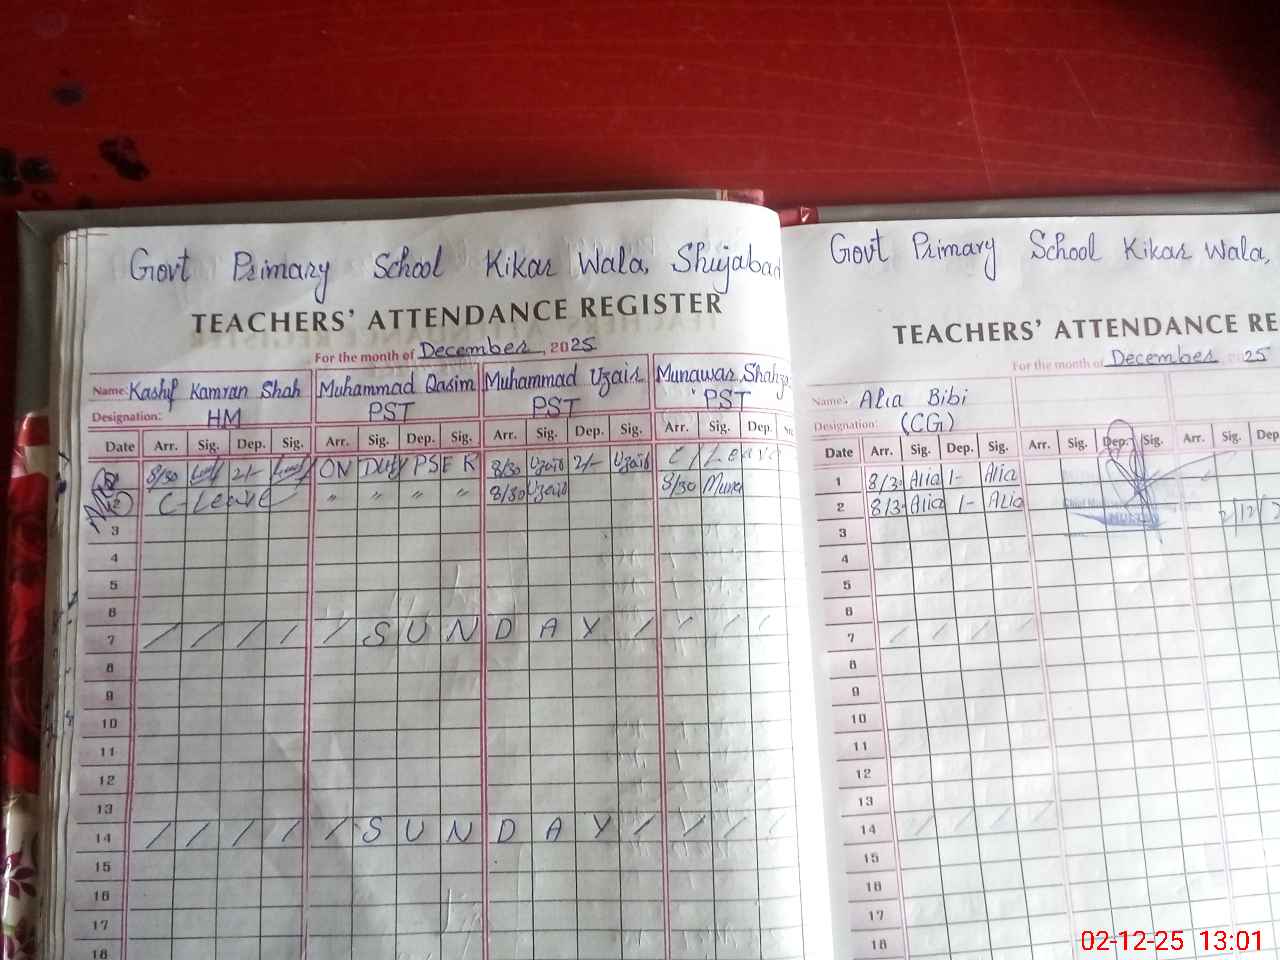 Govt Primary School Kikar Wala, Shujabad
TEACHERS' ATTENDANCE REGISTER
For the month of December, 2025
Name: Kashif Kamran Shah Muhammad Qasim Muhammad Uzair Munawar Shahza
Designation: HM PST PST PST
Date Arr. Sig. Dep. Sig. Arr. Sig. Dep. Sig. Arr. Sig. Dep. Sig. Arr. Sig. Dep.
8/30 2/- ON Duty PSER 8/30 Uzair 2/- Uzair C/Leave
2 C-Leave " " " " 8/30 Uzair 8/30 Muna
3
4
5
6
7 / / / / / S U N D A Y / / / /
8
9
10
11
12
13
14 / / / / / S U N D A Y / / / /
15
16
17
18
Govt Primary School Kikar Wala,
TEACHERS' ATTENDANCE RE
For the month of December 2025
Name: Alia Bibi
Designation: (CG)
Date Arr. Sig. Dep. Sig. Arr. Sig. Dep. Sig. Arr. Sig. Dep
1 8/3 Alia 1- Alia
2 8/3 Alia 1- Alia
3 2/12/2
4
5
6
7 / / / /
8
9
10
11
12
13
14 / / / /
15
16
17
18
02-12-25 13:01